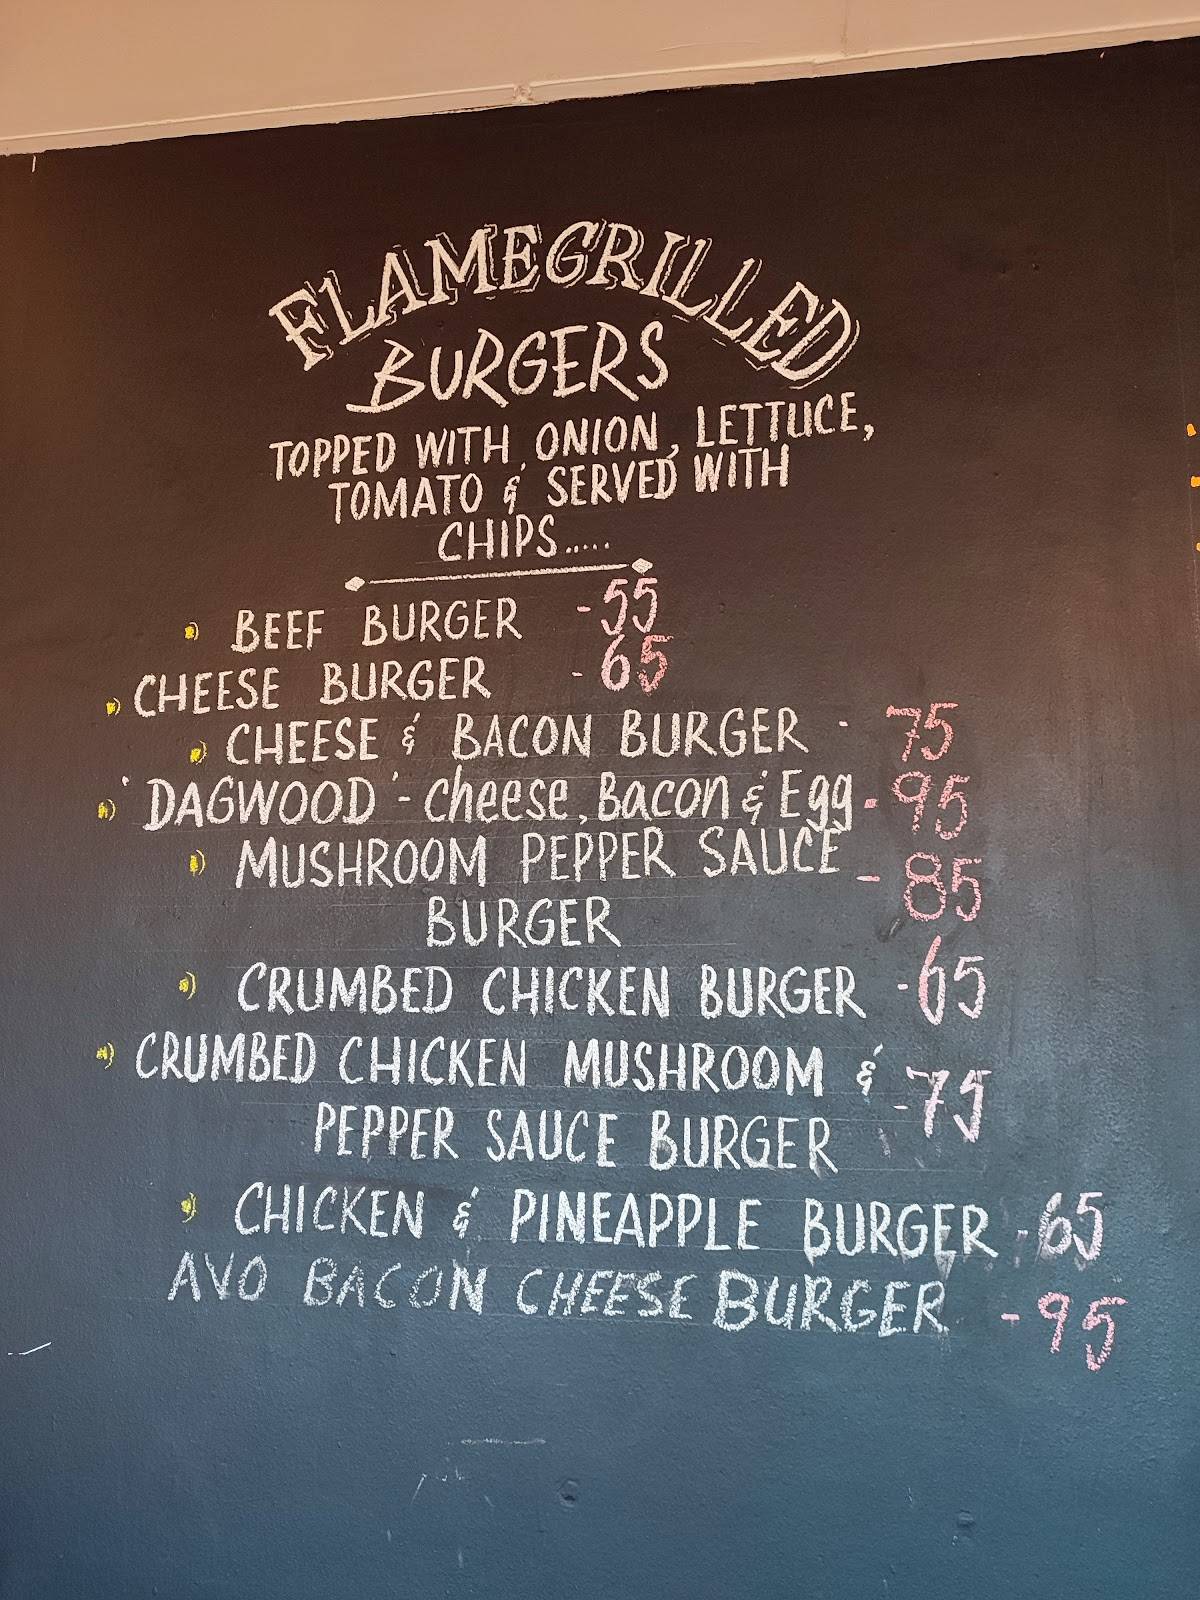 FLAMEGRILLED
BURGERS
TOPPED WITH ONION, LETTUCE,
TOMATO & SERVED WITH
CHIPS.....
BEEF BURGER -55
CHEESE BURGER -65
CHEESE & BACON BURGER - 75
'DAGWOOD' - cheese, Bacon & Egg - 95
MUSHROOM PEPPER SAUCE - 85
BURGER
CRUMBED CHICKEN BURGER -65
CRUMBED CHICKEN MUSHROOM & -75
PEPPER SAUCE BURGER
CHICKEN & PINEAPPLE BURGER -65
AVO BACON CHEESE BURGER -95